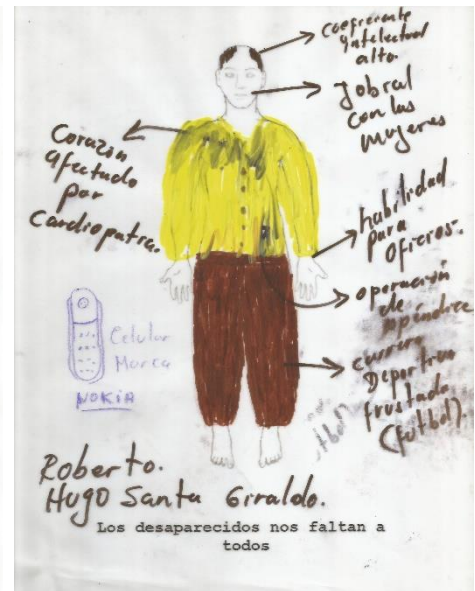 coefirente
intelectual
alto.
Jobral
con las
mujeres
Corazón
afectado
por
cardiopatia.
habilidad
para
oficios.
operación
de
apéndice
carrera
Deportiva
frustada
(futbol)
Celular
Marca
NOKIA
Roberto.
Hugo Santa Giraldo.
Los desaparecidos nos faltan a
todos